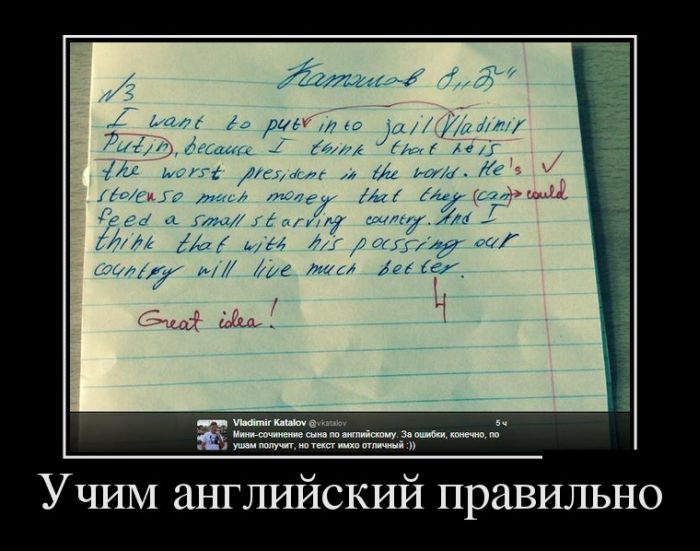 Каталов 8 „Б“
№3
I want to put into jail Vladimir
Putin, because I think that he is
the worst president in the world. He's
stolen so much money that they (can) → could
feed a small starving country. And I
think that with his passing our
country will live much better.
4
Great idea!
Vladimir Katalov @vkatalov 5 ч
Мини-сочинение сына по английскому. За ошибки, конечно, по
ушам получит, но текст имхо отличный :))
Учим английский правильно